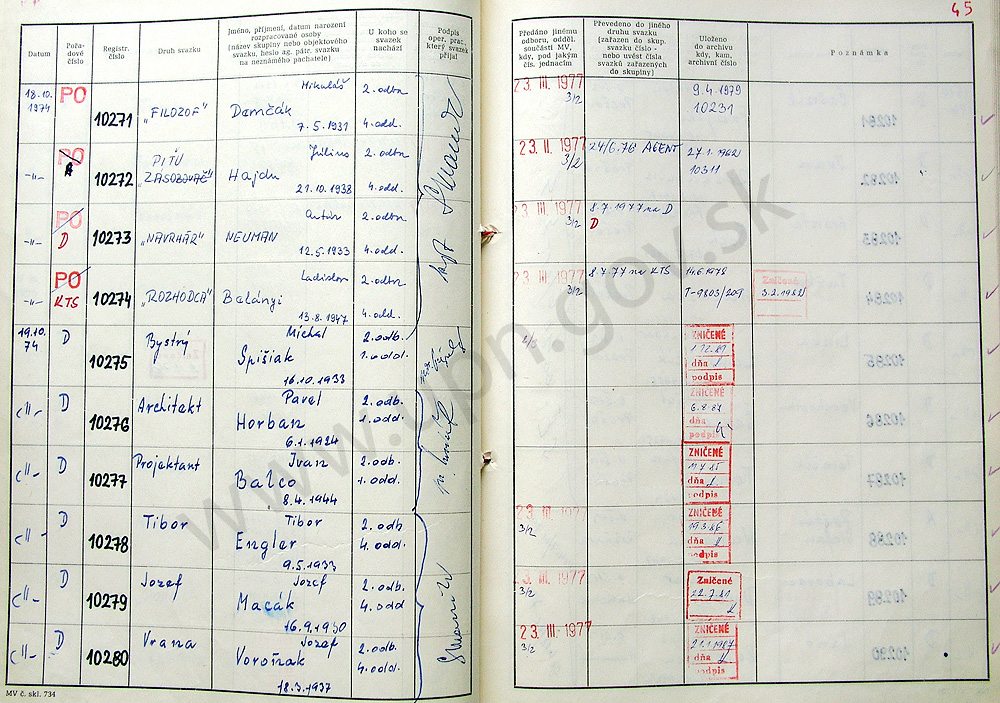 45
Datum
Pořa-
dové
číslo
Registr.
číslo
Druh svazku
Jméno, příjmení, datum narození
rozpracované osoby
(název skupiny nebo objektového
svazku, heslo ag. pátr. svazku
na neznámého pachatele)
U koho se
svazek
nachází
Podpis
oper. prac.,
který svazek
přijal
Předáno jinému
odboru, odděl.
součásti MV,
kdy, pod jakým
čís. jednacím
Převedeno do jiného
druhu svazku
(zařazen do skup.
svazku číslo -
nebo uvést čísla
svazků zařazených
do skupiny)
Uloženo
do archivu
kdy, kam,
archivní číslo
Poznámka
18.10.
1974
PO
10271
„FILOZOF"
Mikuláš
Demčák
7.5.1931
2. odbor
4. odd.
23. III. 1977
3/2
9.4.1979
10231
-"-
PO
A
10272
PITU
ZÁSOBOVAČ
Július
Hajdu
21.10.1938
2. odbor
4. odd.
23. II. 1977
3/2
24/6.76 AGENT
10311
-"-
PO
D
10273
„NÁVRHÁR"
Anton
NEUMAN
12.5.1933
2. odbor
4. odd.
23 III. 1977
3/2
8.7.1977 na D
D
-"-
PO
KTS
10274
„ROZHODCA"
Ladislav
Balányi
13.8.1947
2. odbor
4. odd.
23 III. 1977
3/2
8.7.77 na KTS
14.6.1978
T-9803/209
Zničené
3.2.1982
19.10.
74
D
10275
Bystrý
Michal
Spišiak
16.10.1933
2. odb.
1. odd.
ZNIČENÉ
dňa
podpis
-"-
D
10276
Architekt
Pavel
Horban
6.1.1924
2. odb.
1. odd.
ZNIČENÉ
6.8.87
dňa
podpis
-"-
D
10277
Projektant
Ivan
Balco
8.4.1944
2. odb.
1. odd.
ZNIČENÉ
dňa
podpis
-"-
D
10278
Tibor
Tibor
Engler
9.5.1933
2. odb
4. odd.
23 III. 1977
3/2
ZNIČENÉ
dňa
podpis
-"-
D
10279
Jozef
Jozef
Macák
16.9.1930
2. odb.
4. odd
23 III. 1977
3/2
Zničené
-"-
D
10280
Vrana
Jozef
Voroňak
18.3.1937
2. odb.
4. odd.
23 III. 1977
3/2
ZNIČENÉ
21.1.1987
dňa
podpis
MV č. skl. 734
www.upn.gov.sk